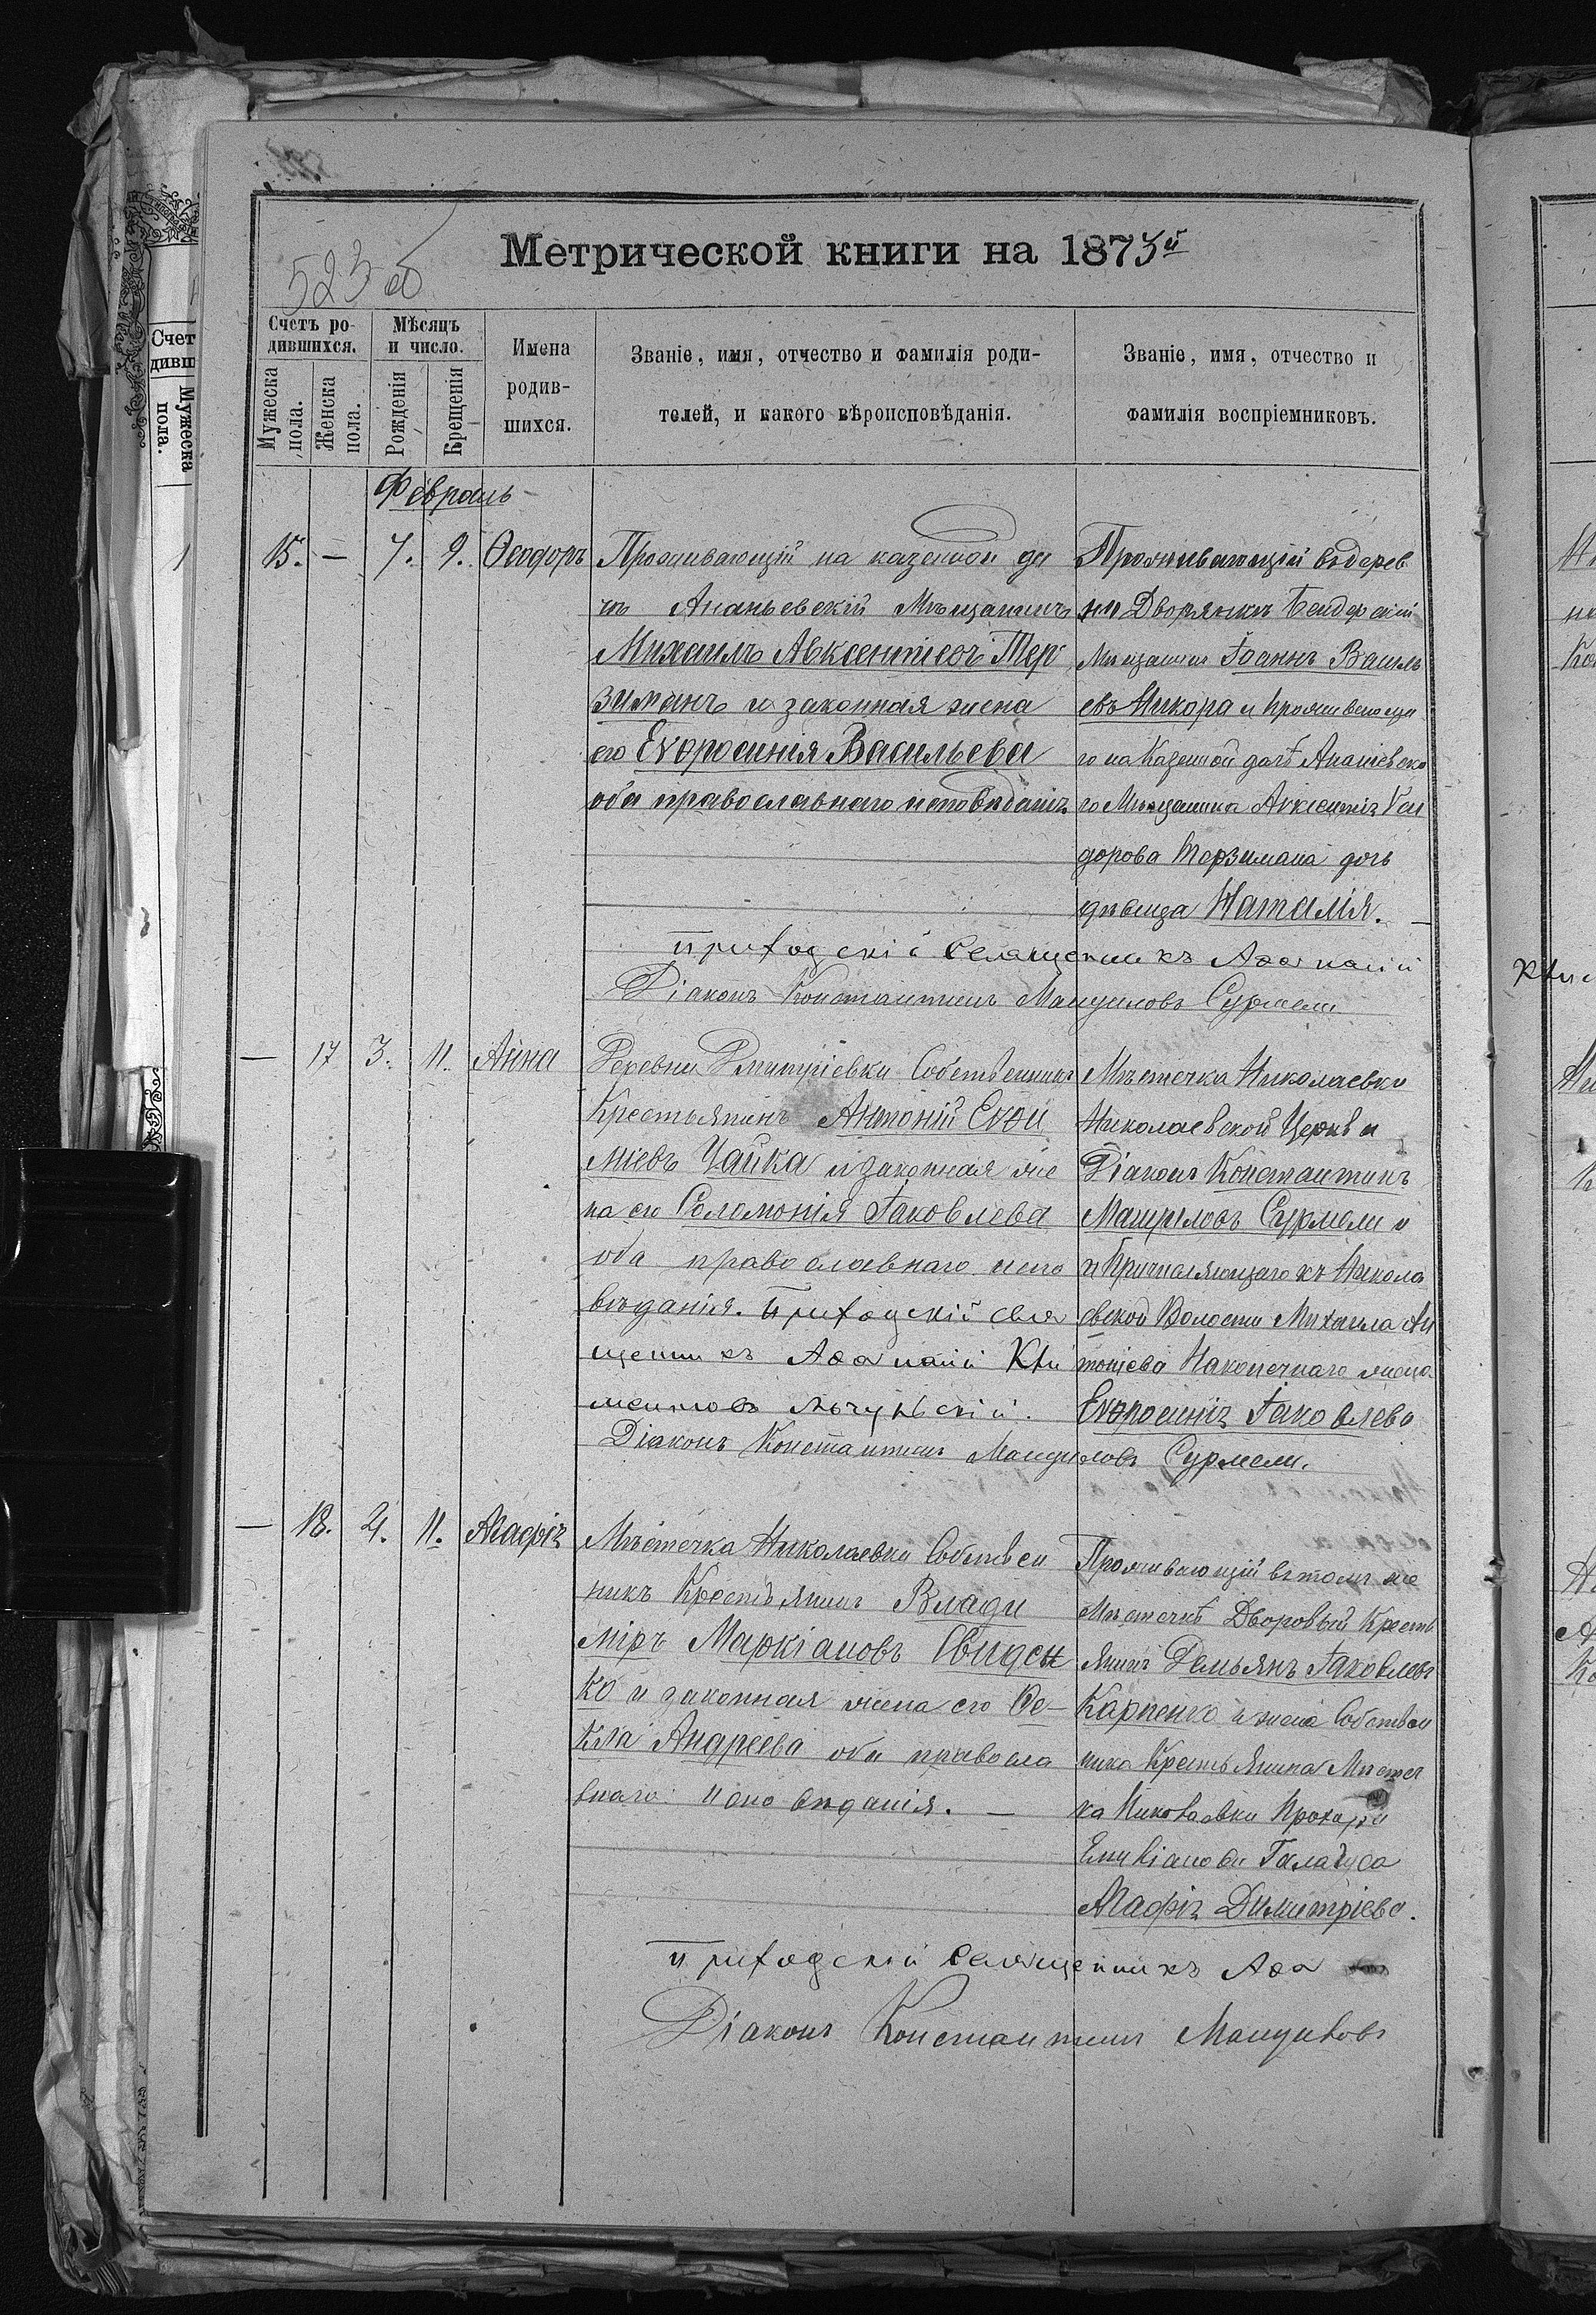 523 об
Метрической книги на 1875й
Счетъ ро-
дившихся.
Мѣсяцъ
и число.
Мужеска
пола.
Женска
пола.
Рожденія
Крещенія
Имена
родив-
шихся.
Званіе, имя, отчество и фамилія роди-
телей, и какого вѣроисповѣданія.
Званіе, имя, отчество и
фамилія воспріемниковъ.
Февраль
15. — 7. 9. Ѳеодоръ
Проживающій на казенной да
чѣ Ананьевскій Мѣщанинъ
Михаилъ Авксентіевъ Тер
зиманъ и законная жена
его Евфросинія Васильева
оба православнаго исповѣданія.
Проживающій въ дерев
ни Дворянкѣ Бендерскій
Мѣщанинъ Іоаннъ Василь
евъ Никора и проживающа
го на Казенной дачѣ Ананіевска
го Мѣщанина Авксентія
дорова Терзимана дочь
дѣвица Наталія.
Приходскій Священникъ Аѳанасій
Діаконъ Константинъ Мандиловъ Сурмели
— 17 3. 11. Анна
Деревни Дмитріевки Собственникъ
Крестьянинъ Антоній Евфи
міевъ Чайка и законная же
на его Соломонія Іаковлева
оба православнаго испо
вѣданія. Приходскій свя
щенникъ Аѳанасій Кли
ментовъ
Діаконъ Константинъ Мандиловъ Сурмели.
Мѣстечка Николаевки
Николаевской Церкви
Діаконъ Константинъ
Мандиловъ Сурмели и
и Причисляющаго къ Никола
евской Волости Михаила Ан
тоніева Наконечнаго жена
Евфросинія Іаковлева
— 18. 4. 11. Агафія
Мѣстечка Николаевки Собствен
никъ Крестьянинъ Влади
міръ Маркіановъ Свиден
ко и законная жена его Ѳе-
кла Андреева оба правосла
внаго исповѣданія. —
Проживающій въ томъ же
Мѣстечкѣ Дворовый Кресть
янинъ Демьянъ Іаковлевъ
Карпенко и жена Собствен
ника Крестьянина Мѣстеч
ка Николаевки Прохора
Емиліанова
Агафія Димитріева.
Приходскій Священникъ Аѳа
Діаконъ Константинъ Мандиловъ